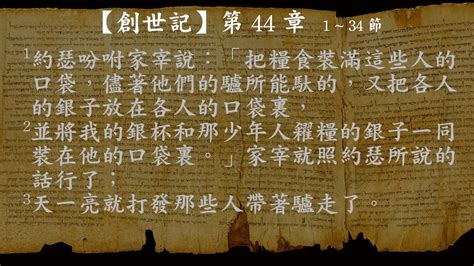 【創世記】第 44 章 1 ~ 34 節
1約瑟吩咐家宰說：「把糧食裝滿這些人的
口袋，儘著他們的驢所能馱的，又把各人
的銀子放在各人的口袋裏，
2並將我的銀杯和那少年人糴糧的銀子一同
裝在他的口袋裏。」家宰就照約瑟所說的
話行了；
3天一亮就打發那些人帶著驢走了。